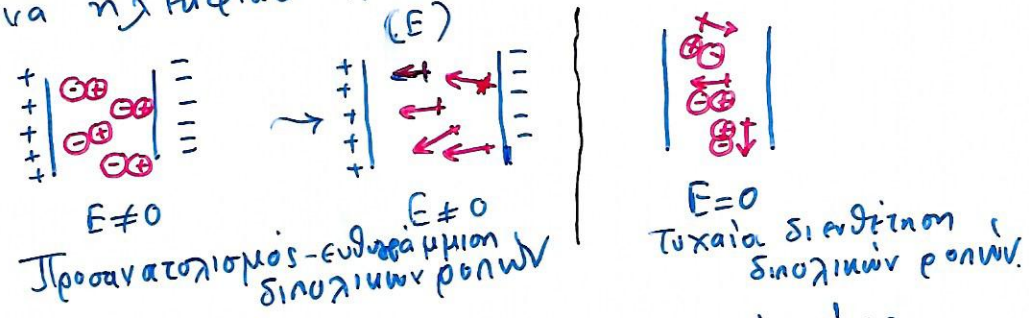 να
(E)
E≠0
E≠0
E=0
Προσανατολισμός-ευθυγράμμιση
διπολικών ροπών
Τυχαία διευθέτηση
διπολικών ροπών.